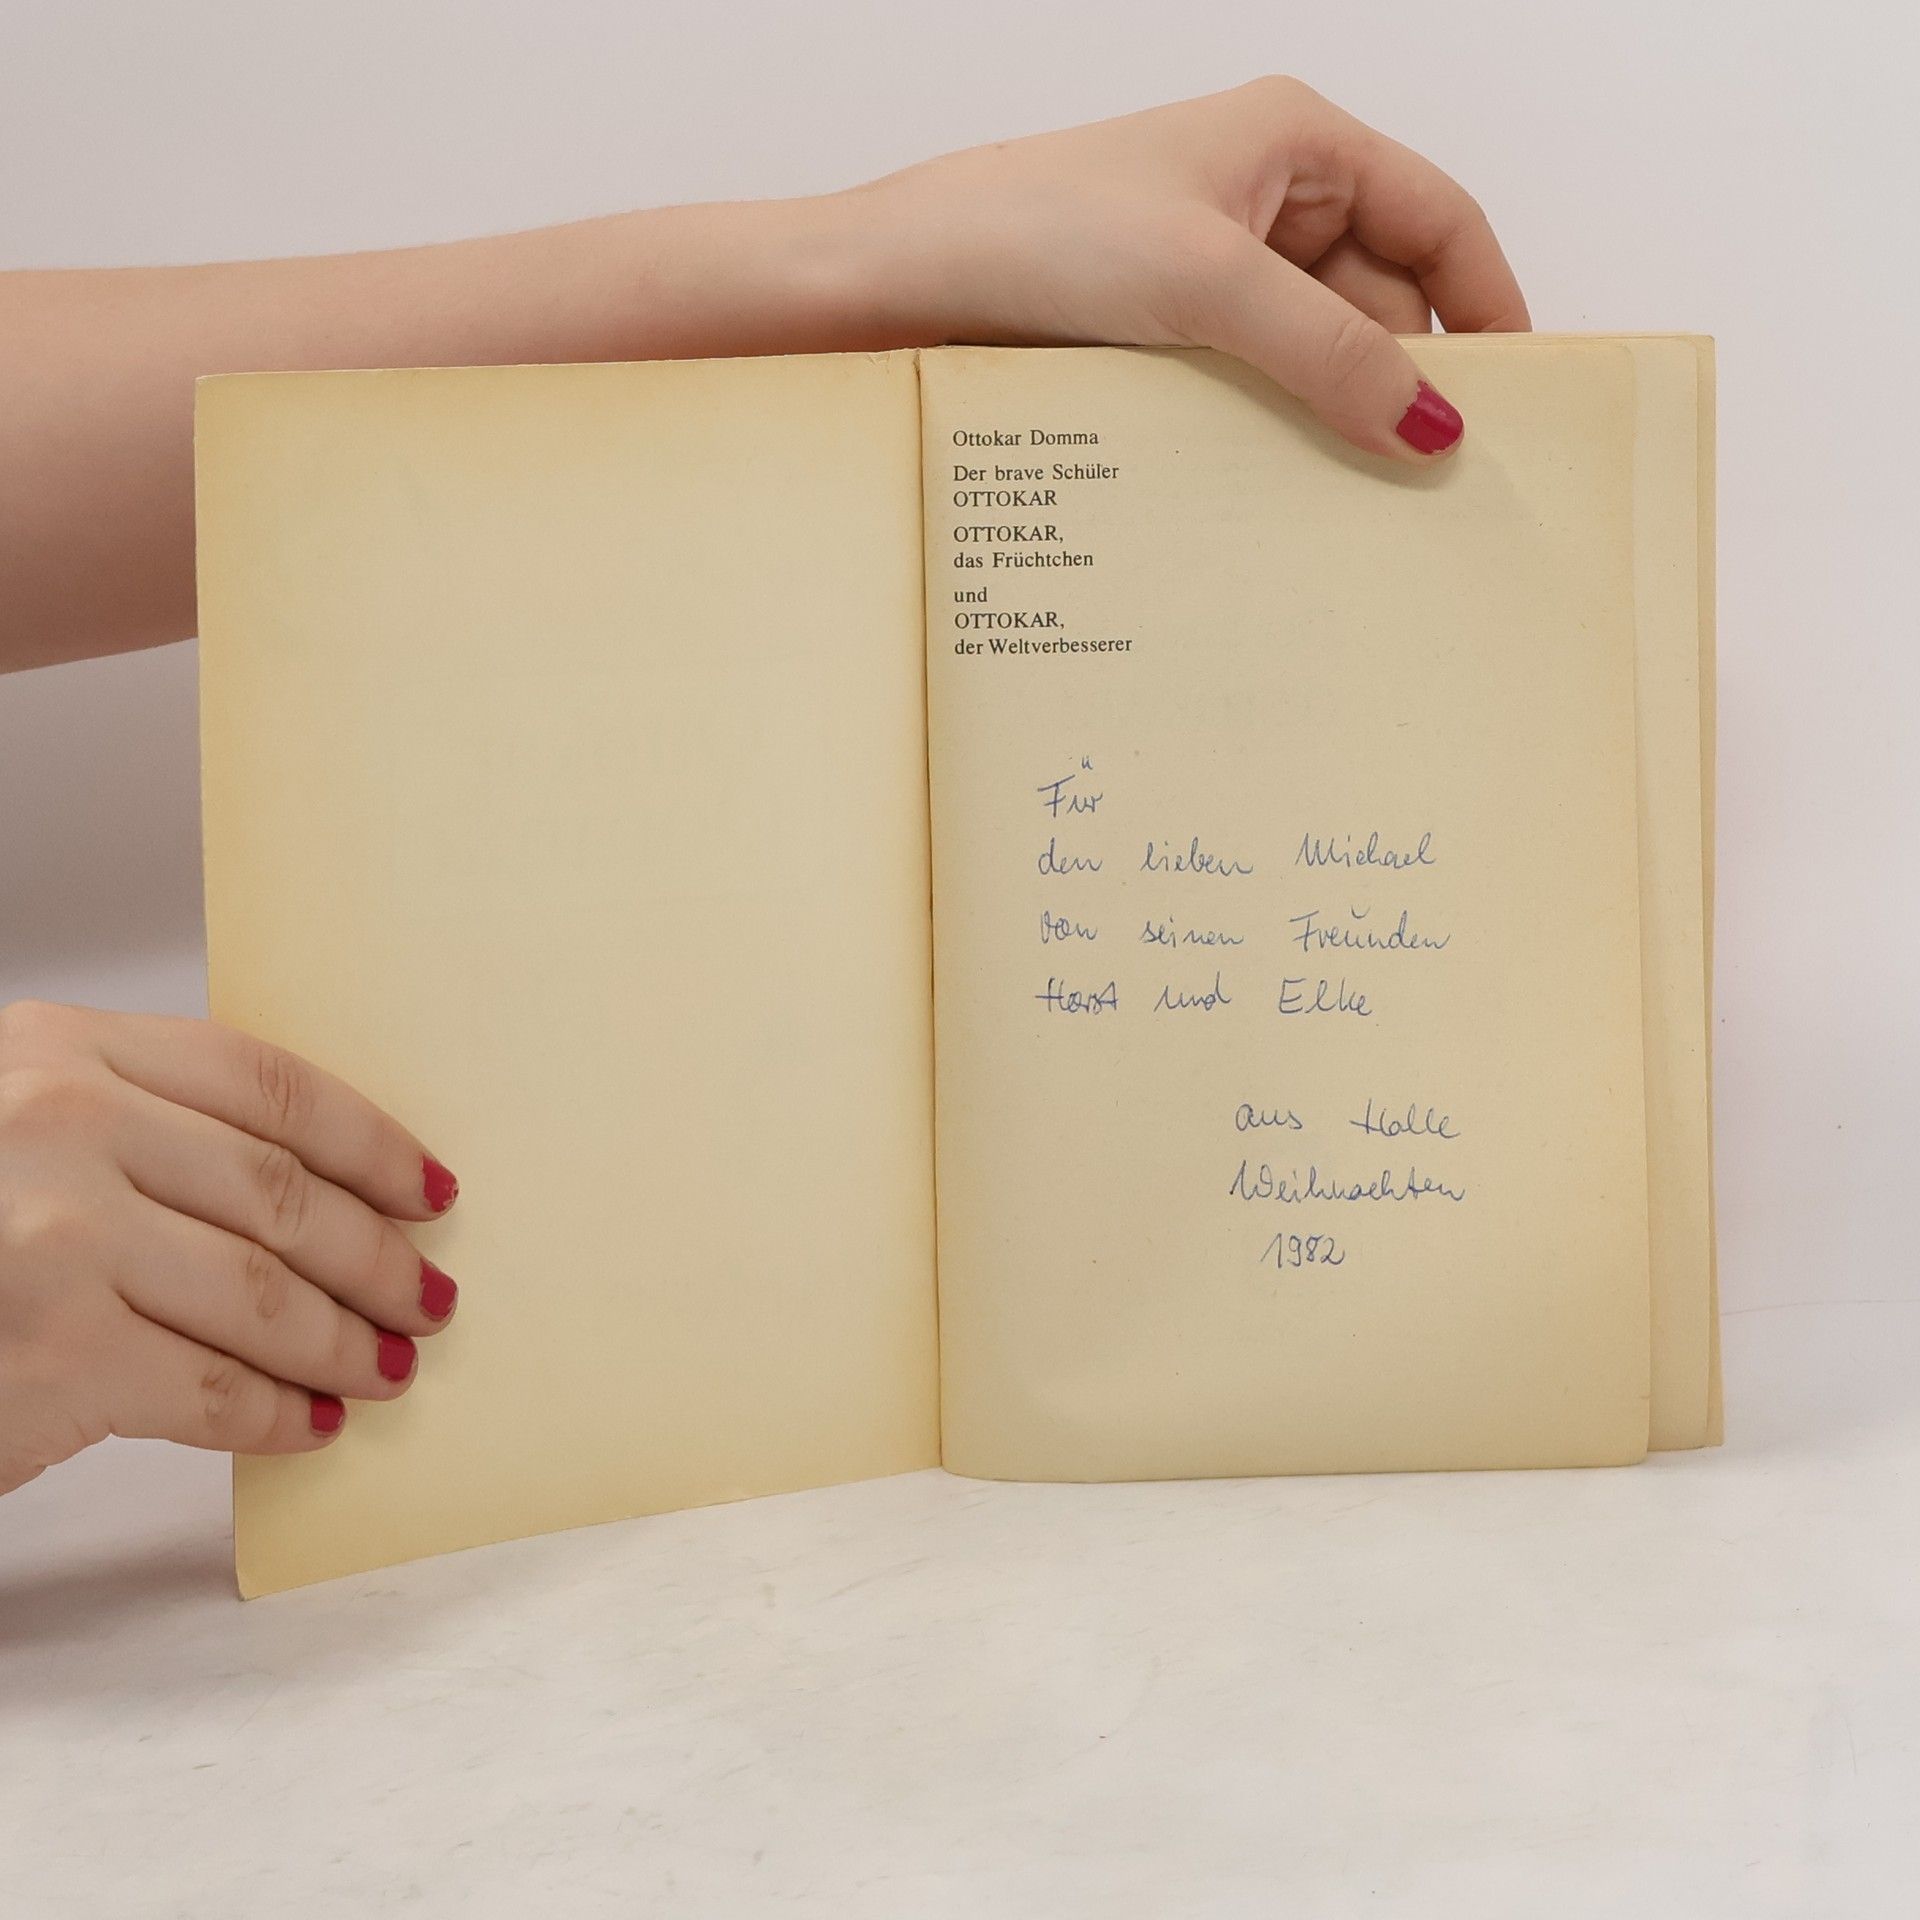 Ottokar Domma
Der brave Schüler
OTTOKAR
OTTOKAR,
das Früchtchen
und
OTTOKAR,
der Weltverbesserer
Für
den lieben Michael
von seinen Freunden
Horst und Elke
aus Halle
Weihnachten
1982